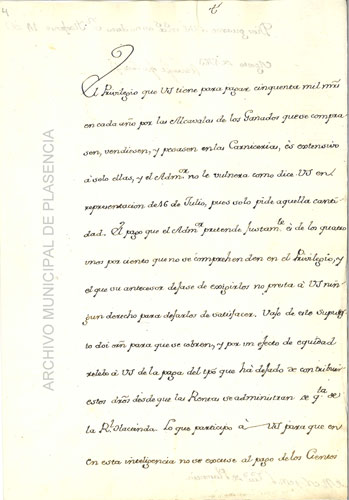 El Privilegio que VS tiene para pagar cinquenta mil mrs
en cada año por las Alcavalas de los Ganados que se compra
sen, vendiesen, y pesasen en las Carnicerias, es extensivo
à solo ellas, y el Admor. no le vulnera como dice VS en
representacion de 16 de Julio, pues solo pide aquella canti
dad. El pago que el Admor. pretende justamte. es de los quatro
unos por ciento que no se comprehenden en el Privilegio, y
el que su antecesor dejase de exigirlos no presta à VS nin
gun derecho para dejarlos de satisfacer. Vajo de este supues
to doi orñ para que se cobren, y por un efecto de equidad
relebo à VS de la paga del tpo. que ha dejado de contribuir
estos dros desde que las Rentas se administran de qta. de
la Rl. Hacienda. Lo que participo à VS para que en
en esta inteligencia no se excuse al pago de los Cientos
ARCHIVO MUNICIPAL DE PLASENCIA